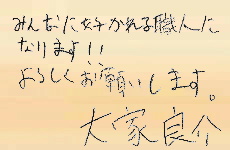 みんなに好かれる職人に
なります!!
よろしくお願いします。
大家良介